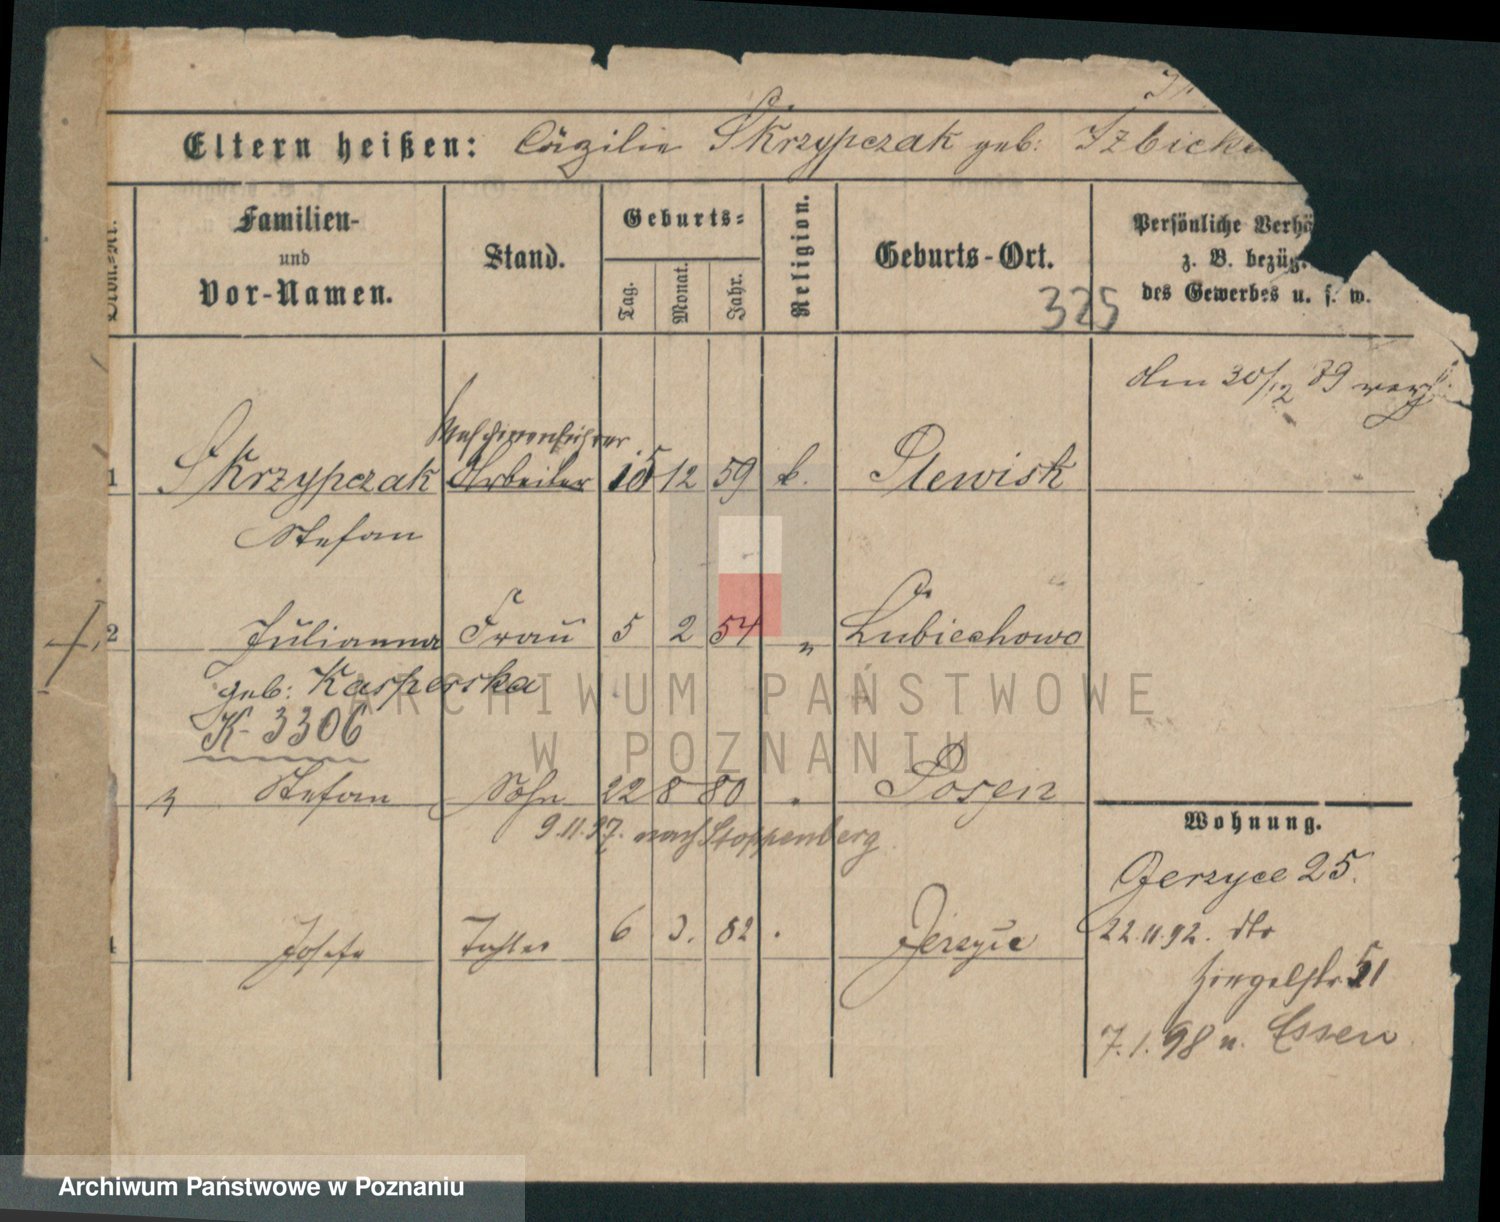 Eltern heißen: Cäzilie Skrzypczak geb: Izbicka
Ordn.-Nr.
Familien-
und
Vor-Namen.
Stand.
Geburts-
Tag.
Monat.
Jahr.
Religion.
Geburts-Ort.
Persönliche Verhä
z. B. bezüg.
des Gewerbes u. s. w.
325
den 30/12 89
Maschinenführer
1 Skrzypczak Arbeiter 15 12 59 k. Plewisk
Stefan
2 Julianna Frau 5 2 54 " Lubiechowo
geb: Kasperska
K-3306
3 Stefan Sohn 22 8 80 " Posen
9.11.97. nach Stoppenberg
Wohnung.
Gerzyce 25.
4 Josefa Tochter 6 3. 82 . Jerzyce
22.11.92. dto
Ziegelstr 51
7.1.98 n. Essen
ARCHIWUM PAŃSTWOWE
W POZNANIU
Archiwum Państwowe w Poznaniu